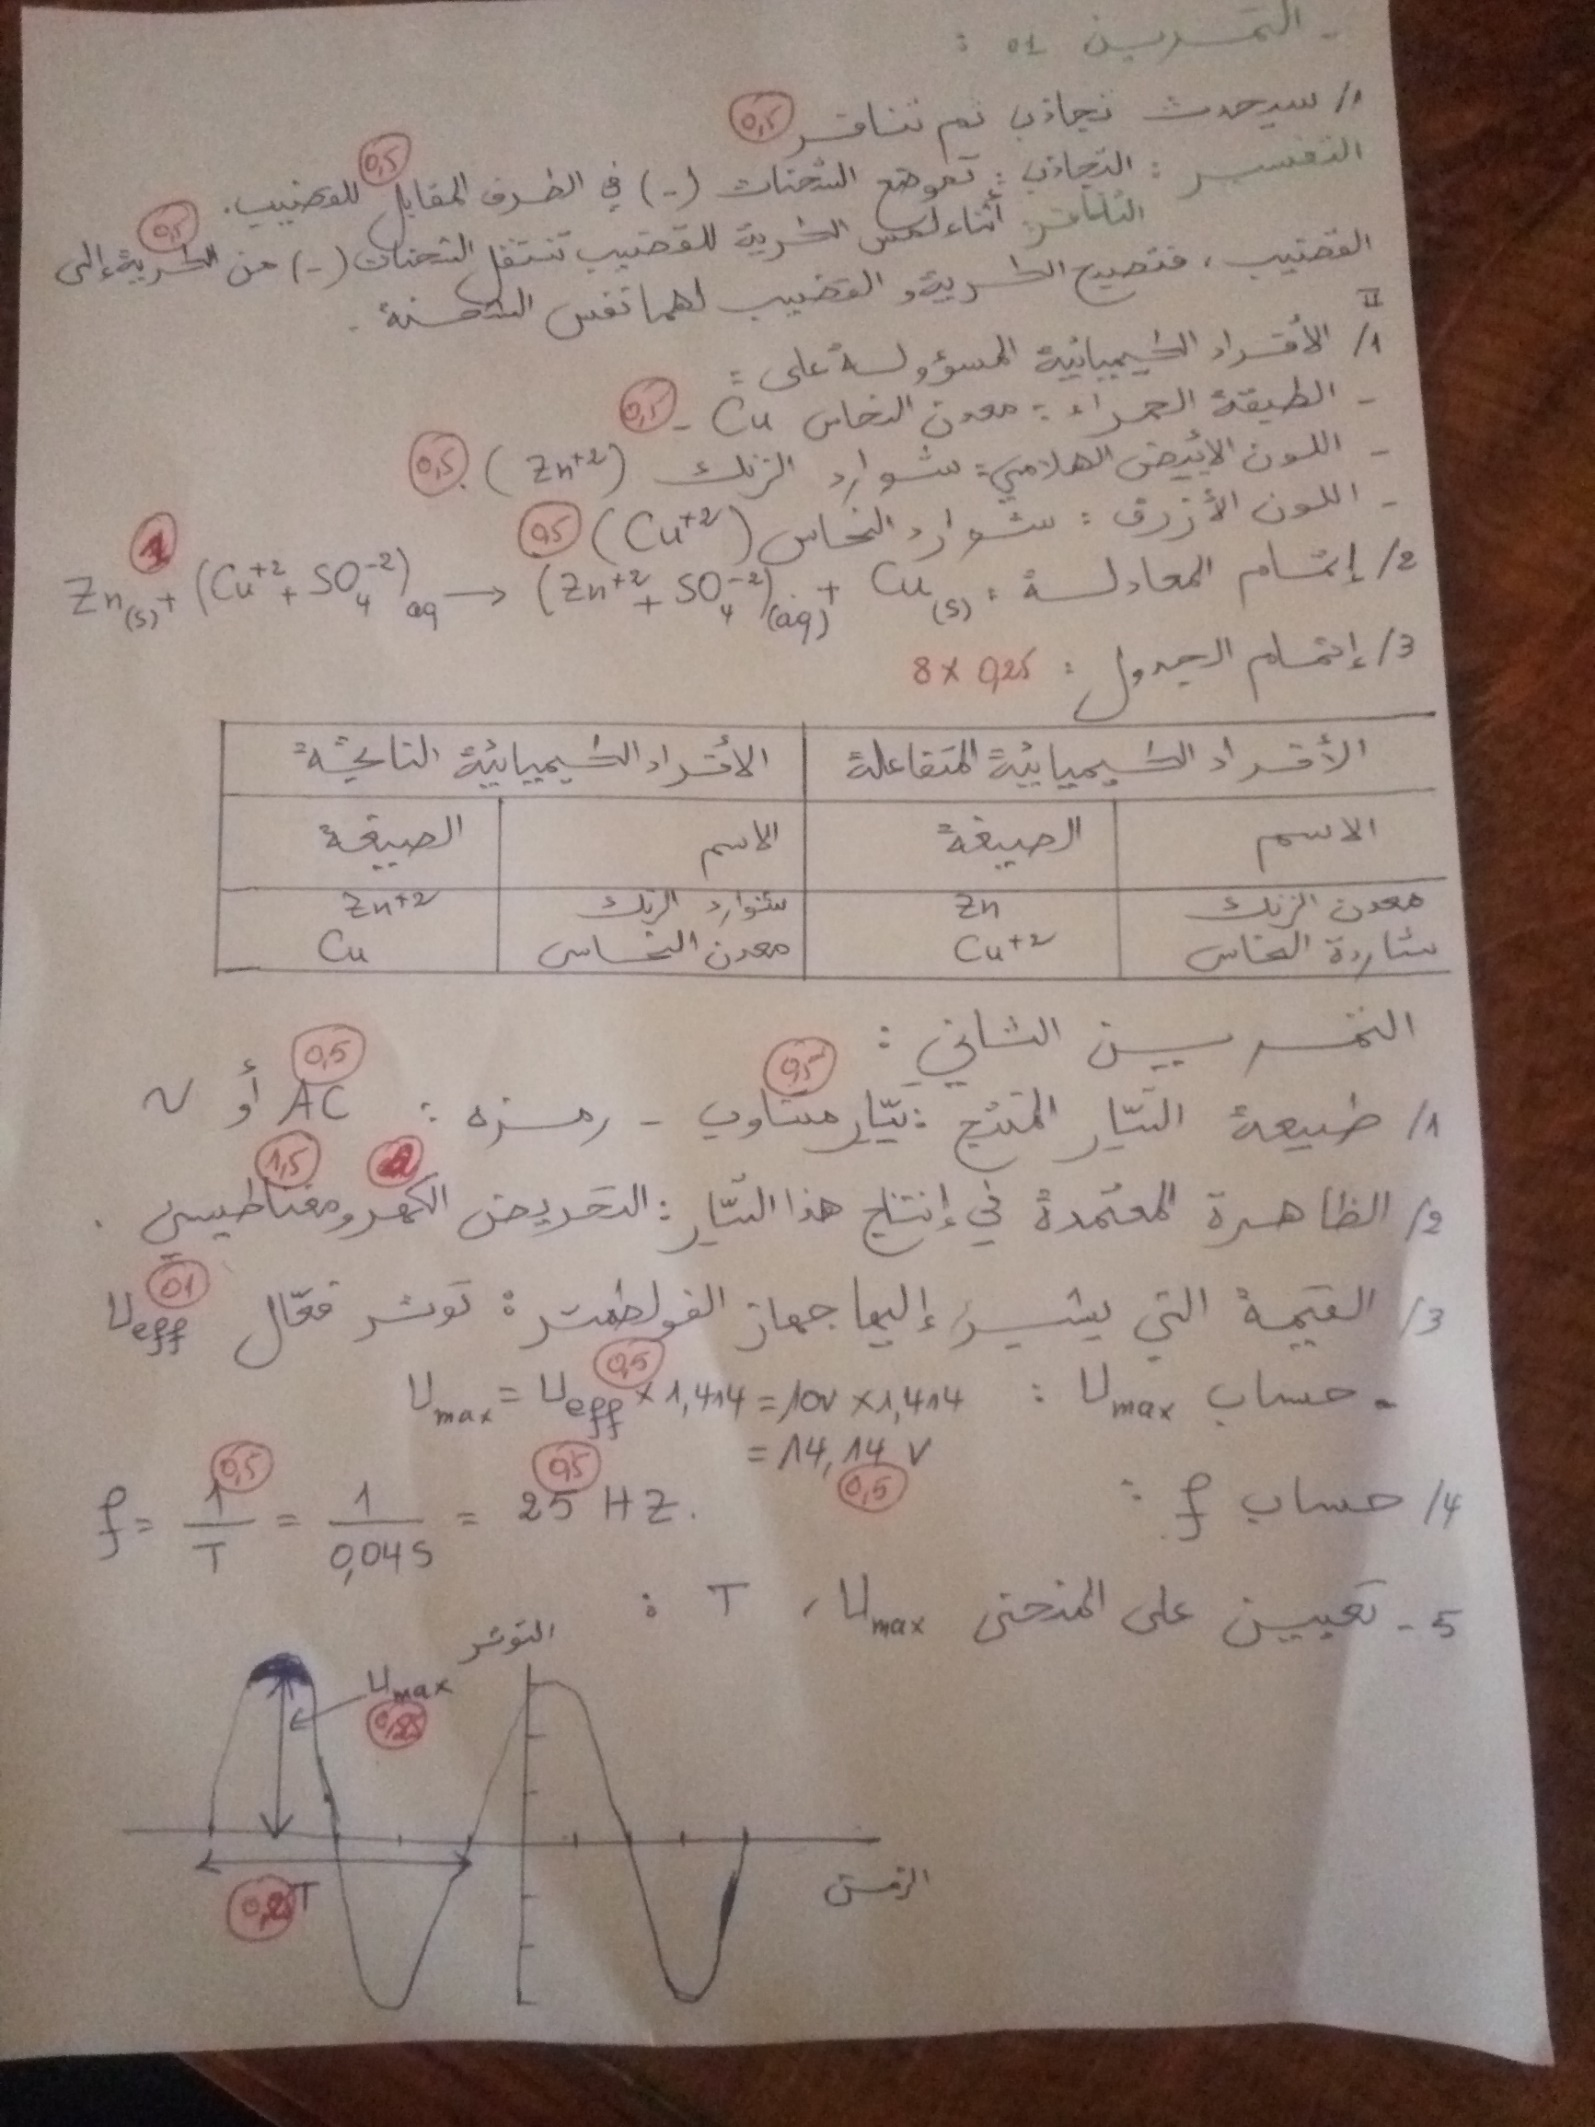 - التمرين 01 :
1/ سيحدث تجاذب ثم تنافر 0,5
التفسير : التجاذب : تموضع الشحنات (-) في الطرف المقابل للقضيب. 0,5
التنافر: أثناء لمس الكرية للقضيب تنتقل الشحنات (-) من الكرية إلى 0,5
القضيب ، فتصبح الكرية و القضيب لهما نفس الشحنة .
II
1/ الأفراد الكيميائية المسؤولة على :
- الطبقة الحمراء : معدن النحاس Cu - 0,5
- اللون الأبيض الهلامي : شوارد الزنك (Zn+2) . 0,5
- اللون الأزرق : شوارد النحاس (Cu+2) 0,5
2/ إتمام المعادلة : Zn(s) + (Cu+2 + SO4-2)aq → (Zn+2 + SO4-2)(aq) + Cu(s) 1
3/ إتمام الجدول : 8 x 0,25
الأفراد الكيميائية المتفاعلة الأفراد الكيميائية الناتجة
الاسم الصيغة الاسم الصيغة
معدن الزنك Zn شوارد الزنك Zn+2
شاردة النحاس Cu+2 معدن النحاس Cu
التمرين الثاني :
1/ طبيعة التيّار المنتج : تيّار متناوب 0,5 - رمزه : AC أو ~ 0,5
2/ الظاهرة المعتمدة في إنتاج هذا التيّار : التحريض الكهرومغناطيسي . 1,5
3/ القيمة التي يشير إليها جهاز الفولطمتر : توتر فعّال Ueff 01
- حساب Umax : Umax = Ueff x 1,414 = 10V x 1,414 0,5
= 14,14 V 0,5
4/ حساب f : f = 1/T = 1/0,04S = 25 HZ. 0,5 0,5
5 - تعيين على المنحنى Umax ، T :
التوتر
Umax
0,25
الزمن
T 0,25